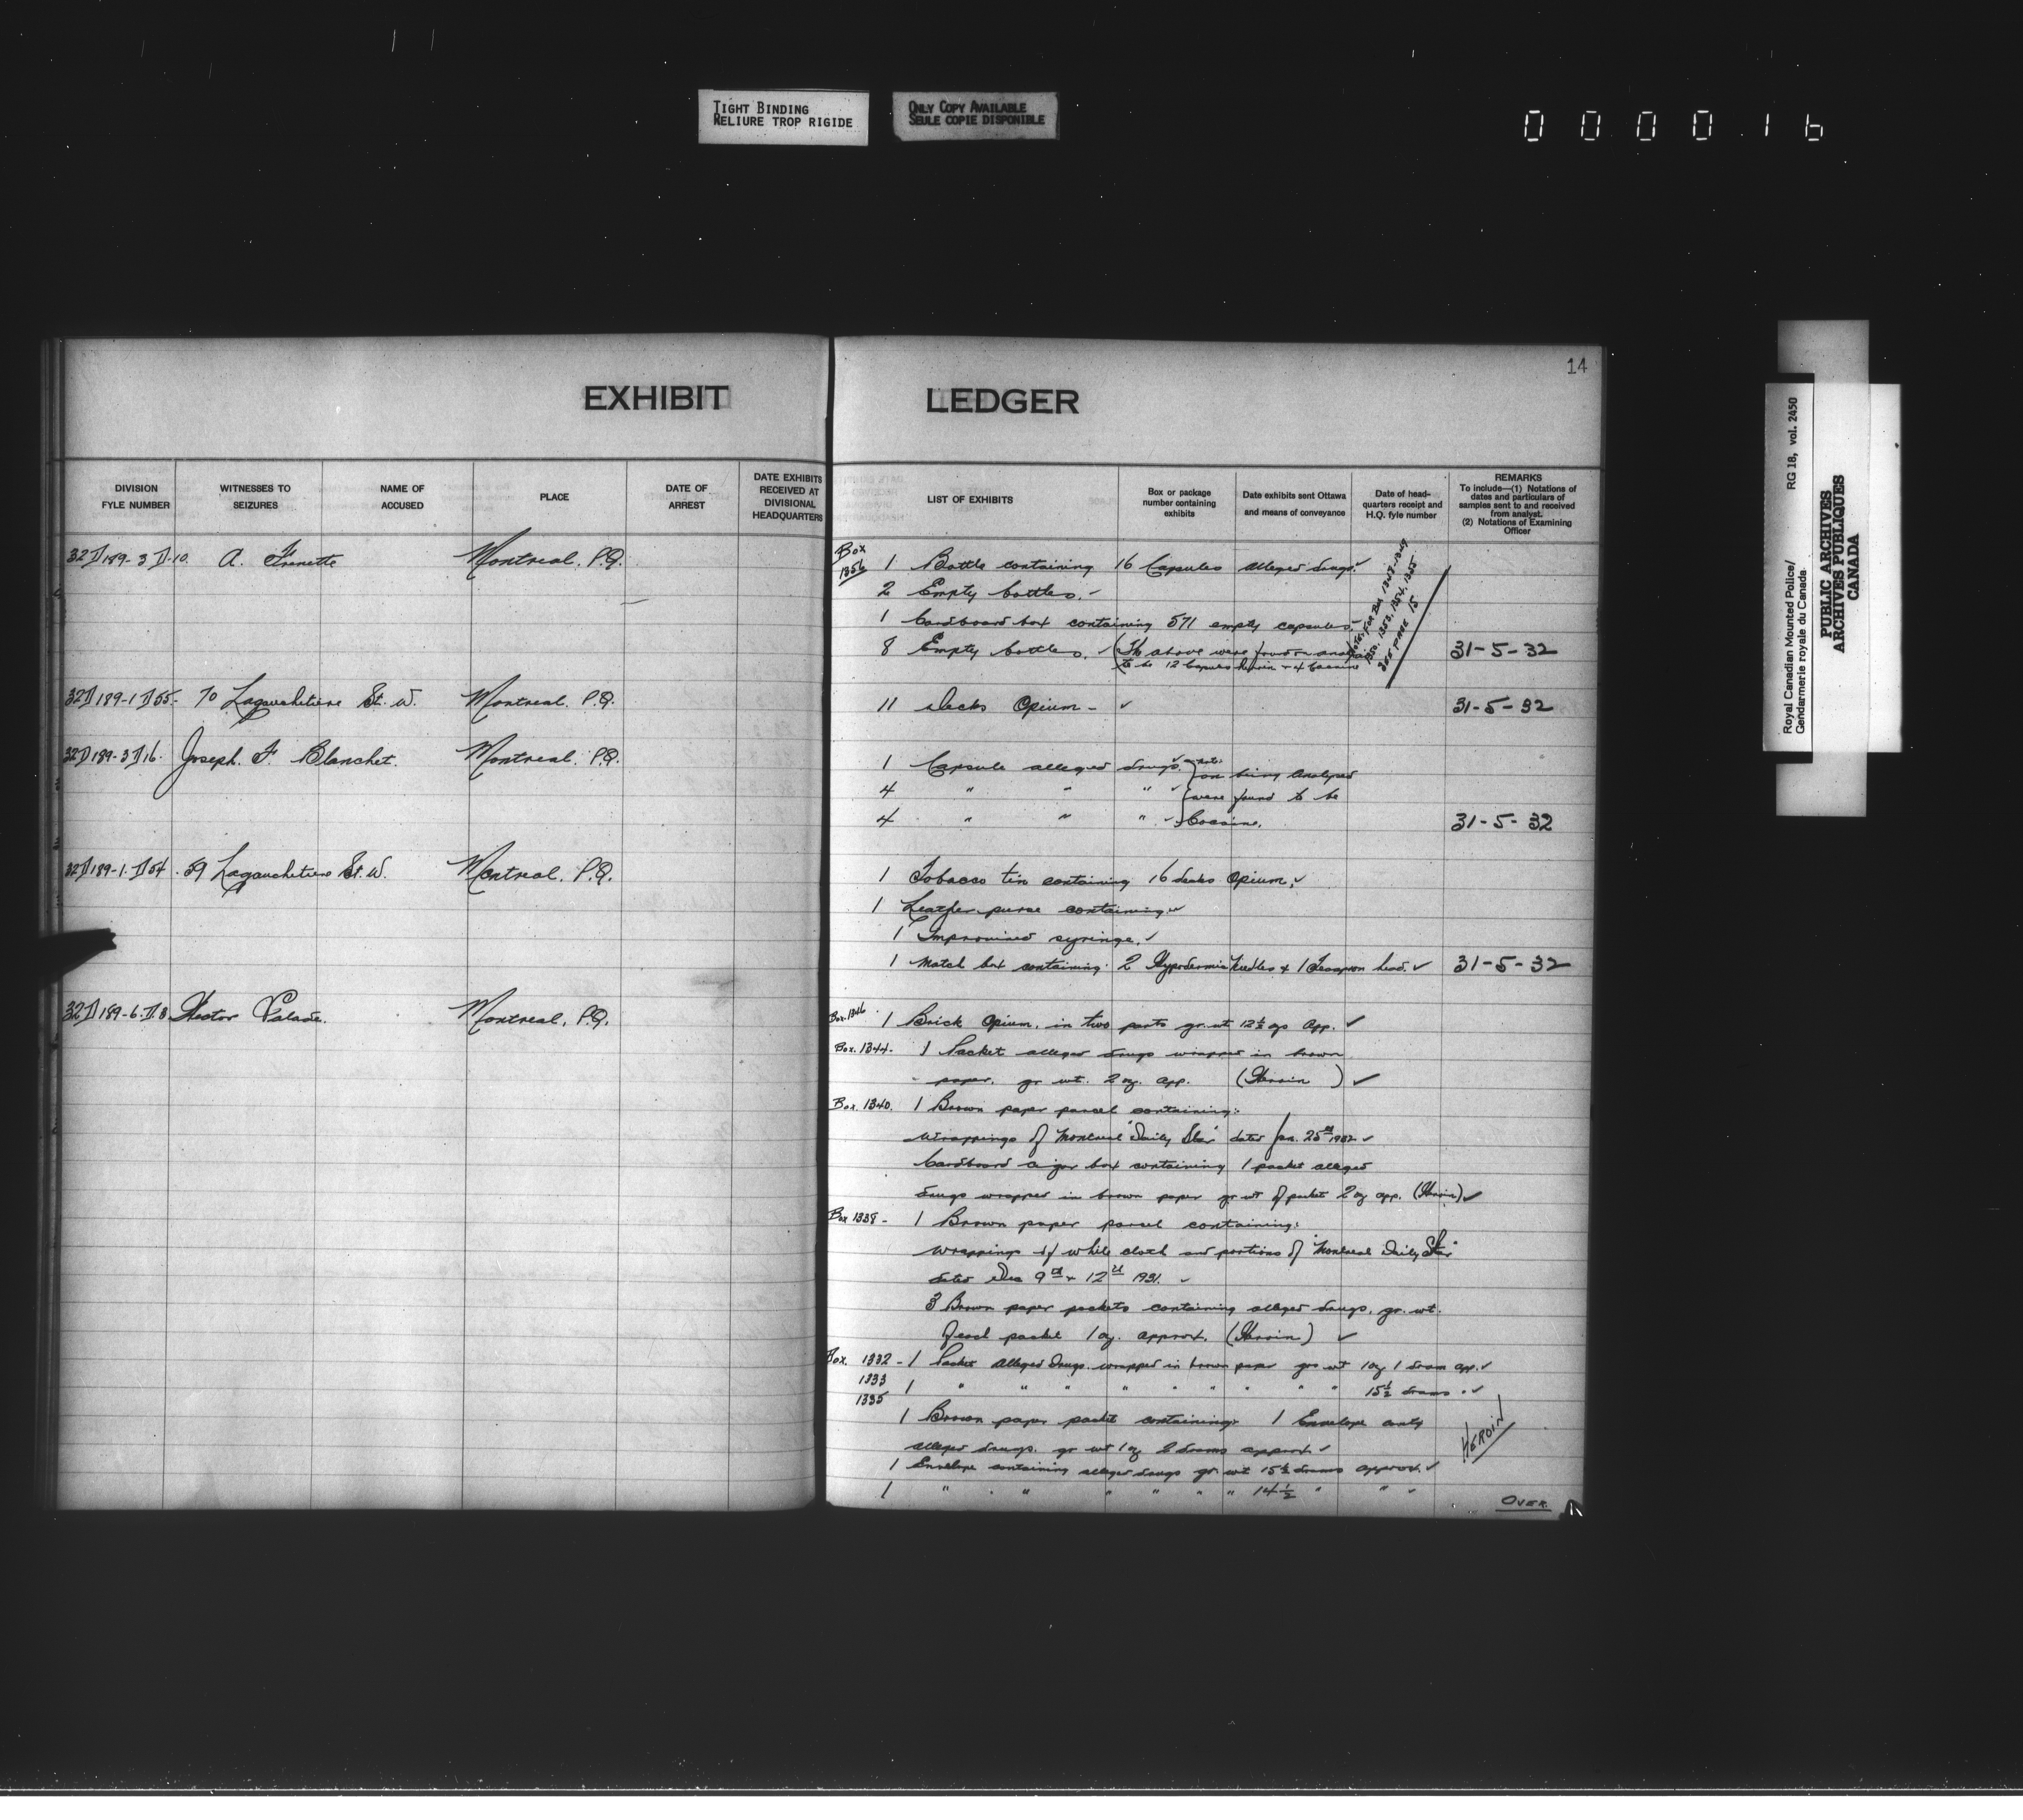 TIGHT BINDING
RELIURE TROP RIGIDE
ONLY COPY AVAILABLE
SEULE COPIE DISPONIBLE
000016
14
EXHIBIT LEDGER
DIVISION FYLE NUMBER
WITNESSES TO SEIZURES
NAME OF ACCUSED
PLACE
DATE OF ARREST
DATE EXHIBITS RECEIVED AT DIVISIONAL HEADQUARTERS
LIST OF EXHIBITS
Box or package number containing exhibits
Date exhibits sent Ottawa and means of conveyance
Date of head-quarters receipt and H.Q. fyle number
REMARKS
To include—(1) Notations of dates and particulars of samples sent to and received from analyst.
(2) Notations of Examining Officer
32D189-3D-10. A. Frenette Montreal. P.Q.
Box 1356 1 Bottle containing 16 Capsules alleged drugs.
2 Empty bottles.
1 Cardboard box containing 571 empty capsules.
8 Empty bottles. (The above were found on
to be 12 Capsules Heroin + 4 Cocaine
31-5-32
1350, 1353, 1354, 1355
SEE PAGE 15
32D189-1D55- 70 Lagauchetiere St. W. Montreal. P.Q. 11 decks Opium - 31-5-32
32D189-3D16. Joseph. F. Blanchet. Montreal. P.Q.
1 Capsule alleged drugs. on being analysed
4 " " " were found to be
4 " " " Cocaine. 31-5-32
32D189-1.D54. 59 Lagauchetiere St. W. Montreal. P.Q.
1 Tobacco tin containing 16 decks Opium.
1 Leather purse containing
1 Improvised syringe.
1 Match box containing 2 Hypodermic Needles + 1 Teaspoon head. 31-5-32
32D189-6.D.8 Hector Palade. Montreal, P.Q.
Box. 1346 1 Brick Opium, in two parts gr. wt 12½ ozs App.
Box. 1344- 1 Packet alleged drugs wrapped in brown
paper. gr wt. 2 oz. app. (Heroin)
Box. 1340. 1 Brown paper parcel containing:
Wrappings of Montreal "Daily Star" dated Jan. 25th 1932
Cardboard cigar box containing 1 packet alleged
drugs wrapped in brown paper gr wt of packet 2 oz app. (Heroin)
Box 1338- 1 Brown paper parcel containing:
Wrappings of white cloth and portions of "Montreal Daily Star"
dated Dec 9th + 12th 1931.
3 Brown paper packets containing alleged drugs, gr. wt.
of each packet 1 oz. approx. (Heroin)
Box. 1332 - 1 Packet alleged drugs wrapped in brown paper gr wt 1 oz 1 dram app.
1333 1 " " " " " " " " " 15½ drams "
1335
1 Brown paper packet containing: 1 Envelope
alleged drugs. gr wt 1 oz 2 drams approx.
1 Envelope containing alleged drugs gr. wt 15½ drams approx.
1 " " " " " " " 14½ " "
HEROIN
OVER.
Royal Canadian Mounted Police/
Gendarmerie royale du Canada
RG 18, vol. 2450
PUBLIC ARCHIVES
ARCHIVES PUBLIQUES
CANADA